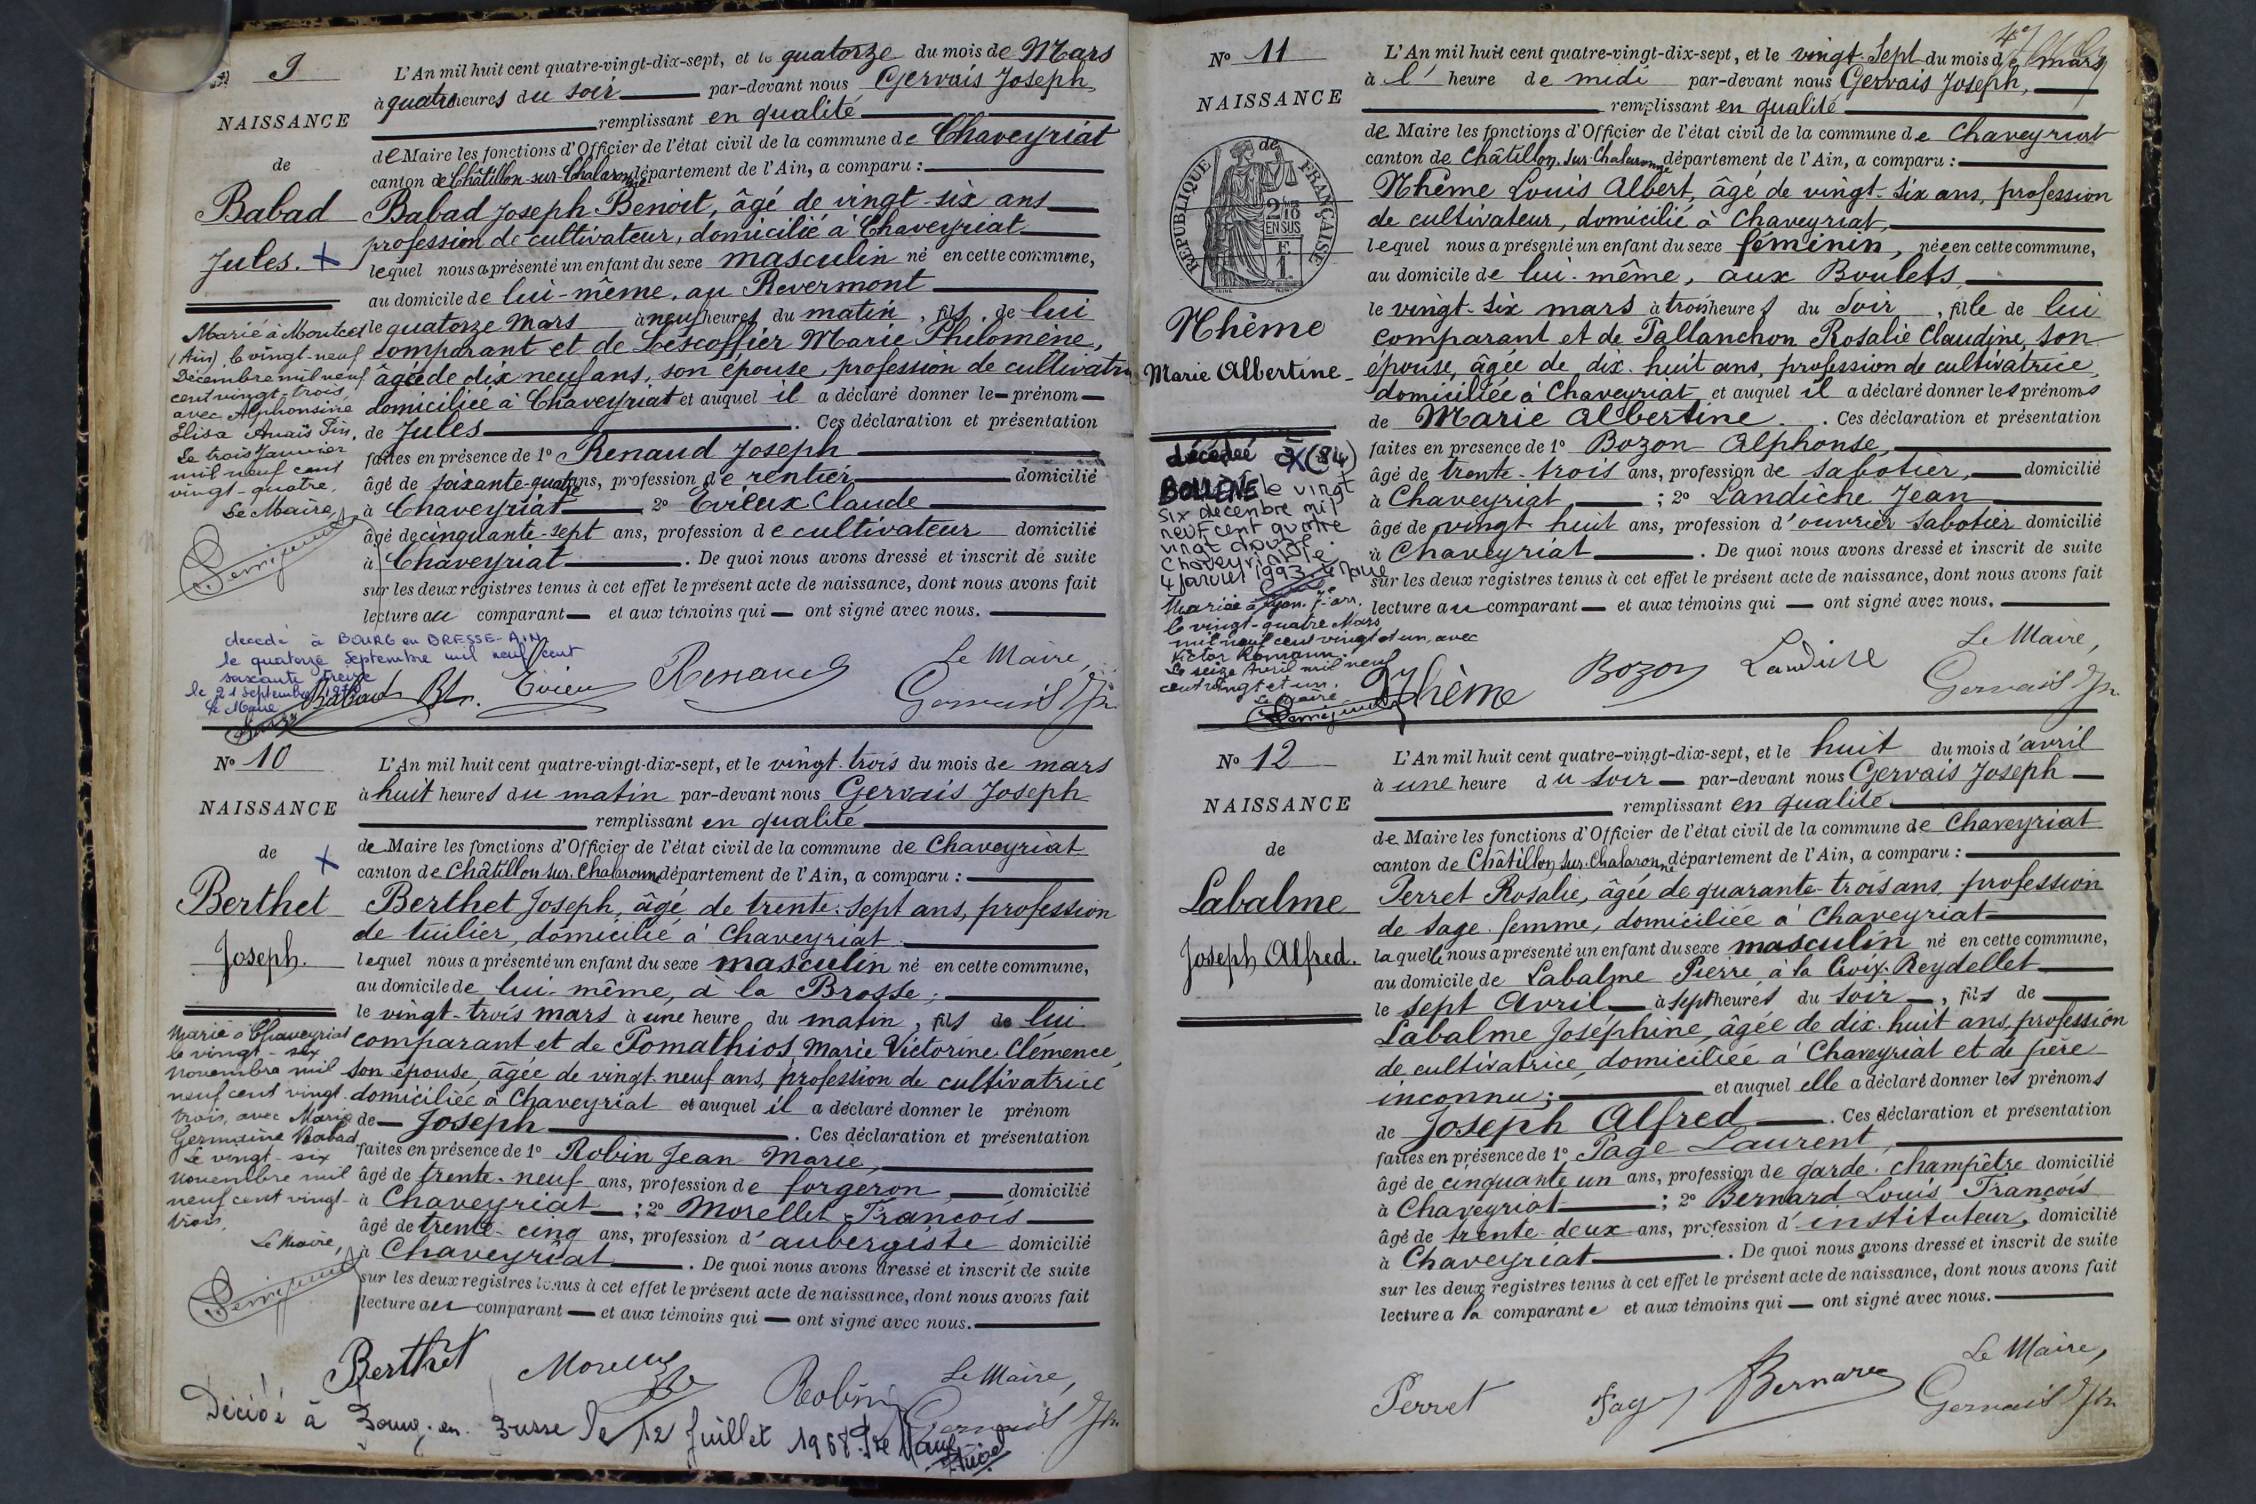 9
NAISSANCE
de
Babad
Jules.
L'An mil huit cent quatre-vingt-dix-sept, et le quatorze du mois de Mars
à quatre heures du soir par-devant nous Gervais Joseph
remplissant en qualité
de Maire les fonctions d'Officier de l'état civil de la commune de Chaveyriat
canton de Châtillon-sur-Chalaronne département de l'Ain, a comparu :
Babad Joseph Benoit, âgé de vingt-six ans
profession de cultivateur, domicilié à Chaveyriat
lequel nous a présenté un enfant du sexe masculin né en cette commune,
au domicile de lui-même, au Revermont
le quatorze Mars à neuf heures du matin, fils de lui
comparant et de Lescoffier Marie Philomène,
âgée de dix neuf ans, son épouse, profession de cultivatrice
domiciliée à Chaveyriat et auquel il a déclaré donner le prénom
de Jules . Ces déclaration et présentation
faites en présence de 1º Renaud Joseph
âgé de soixante-quatre ans, profession de rentier domicilié
à Chaveyriat 2º Evieux Claude
âgé de cinquante-sept ans, profession de cultivateur domicilié
à Chaveyriat . De quoi nous avons dressé et inscrit de suite
sur les deux registres tenus à cet effet le présent acte de naissance, dont nous avons fait
lecture au comparant et aux témoins qui ont signé avec nous.
Marié à Montcet
(Ain) le vingt-neuf
Décembre mil neuf
cent vingt-trois,
avec Alphonsine
Elisa Anaïs Pin,
Le trois Janvier
mil neuf cent
vingt-quatre.
Le Maire,
decedé à BOURG en BRESSE-AIN
le quatorze Septembre mil neuf cent
soixante treize
le 21 septembre 1973
Le Maire
Babad Evieux Renaud
Le Maire,
Gervais Jh
Nº 10
NAISSANCE
de
Berthet
Joseph.
L'An mil huit cent quatre-vingt-dix-sept, et le vingt-trois du mois de mars
à huit heures du matin par-devant nous Gervais Joseph
remplissant en qualité
de Maire les fonctions d'Officier de l'état civil de la commune de Chaveyriat
canton de Châtillon-sur-Chalaronne département de l'Ain, a comparu :
Berthet Joseph, âgé de trente-sept ans, profession
de tuilier, domicilié à Chaveyriat
lequel nous a présenté un enfant du sexe masculin né en cette commune,
au domicile de lui-même, à la Brosse,
le vingt-trois mars à une heure du matin, fils de lui
comparant et de Pomathios Marie Victorine Clémence,
son épouse, âgée de vingt-neuf ans, profession de cultivatrice
domiciliée à Chaveyriat et auquel il a déclaré donner le prénom
de Joseph . Ces déclaration et présentation
faites en présence de 1º Robin Jean Marie,
âgé de trente-neuf ans, profession de forgeron, domicilié
à Chaveyriat ; 2º Morellet François
âgé de trente-cinq ans, profession d'aubergiste domicilié
à Chaveyriat . De quoi nous avons dressé et inscrit de suite
sur les deux registres tenus à cet effet le présent acte de naissance, dont nous avons fait
lecture au comparant et aux témoins qui ont signé avec nous.
Marié à Chaveyriat
le vingt-six
novembre mil
neuf cent vingt-
trois, avec Marie
Germaine Rabad
Le vingt-six
novembre mil
neuf cent vingt-
trois,
Le Maire,
Berthet Morellet Robin
Le Maire,
Gervais Jh
Décidé à Bourg-en-Bresse le 12 Juillet 1968
Nº 11
NAISSANCE
de
RÉPUBLIQUE FRANÇAISE
2/10 EN SUS
Nhême
Marie Albertine
L'An mil huit cent quatre-vingt-dix-sept, et le vingt-sept du mois de mars
à l'heure de midi par-devant nous Gervais Joseph,
remplissant en qualité
de Maire les fonctions d'Officier de l'état civil de la commune de Chaveyriat
canton de Châtillon-sur-Chalaronne département de l'Ain, a comparu :
Nhême Louis Albert, âgé de vingt-six ans, profession
de cultivateur, domicilié à Chaveyriat,
lequel nous a présenté un enfant du sexe féminin, née en cette commune,
au domicile de lui-même, aux Boulets
le vingt-six mars à trois heures du soir, fille de lui
comparant et de Pallanchon Rosalie Claudine, son
épouse, âgée de dix-huit ans, profession de cultivatrice,
domiciliée à Chaveyriat et auquel il a déclaré donner les prénoms
de Marie Albertine . Ces déclaration et présentation
faites en présence de 1º Bozon Alphonse,
âgé de trente-trois ans, profession de sabotier, domicilié
à Chaveyriat ; 2º Landiche Jean
âgé de vingt-huit ans, profession d'ouvrier sabotier domicilié
à Chaveyriat . De quoi nous avons dressé et inscrit de suite
sur les deux registres tenus à cet effet le présent acte de naissance, dont nous avons fait
lecture au comparant et aux témoins qui ont signé avec nous.
décédée à (84)
BOLLENE le vingt
six décembre mil
neuf cent quatre
vingt douze.
Chaveyriat le
4 janvier 1993 Le Maire
Mariée à Lyon 7e arr.
le vingt-quatre Mars
mil neuf cent vingt et un, avec
Victor Romann.
Le seize Avril mil neuf
cent vingt et un.
Le Maire
Nhême Bozon Landiche
Le Maire,
Gervais Jh
Nº 12
NAISSANCE
de
Labalme
Joseph Alfred.
L'An mil huit cent quatre-vingt-dix-sept, et le huit du mois d'avril
à une heure du soir par-devant nous Gervais Joseph
remplissant en qualité
de Maire les fonctions d'Officier de l'état civil de la commune de Chaveyriat
canton de Châtillon-sur-Chalaronne département de l'Ain, a comparu :
Perret Rosalie, âgée de quarante-trois ans, profession
de sage-femme, domiciliée à Chaveyriat
laquelle nous a présenté un enfant du sexe masculin né en cette commune,
au domicile de Labalme Pierre à la Croix-Reydellet
le sept Avril à sept heures du soir, fils de
Labalme Joséphine, âgée de dix-huit ans, profession
de cultivatrice, domiciliée à Chaveyriat et de père
inconnu; et auquel elle a déclaré donner les prénoms
de Joseph Alfred . Ces déclaration et présentation
faites en présence de 1º Page Laurent,
âgé de cinquante un ans, profession de garde-champêtre domicilié
à Chaveyriat ; 2º Bernard Louis François
âgé de trente-deux ans, profession d'instituteur, domicilié
à Chaveyriat . De quoi nous avons dressé et inscrit de suite
sur les deux registres tenus à cet effet le présent acte de naissance, dont nous avons fait
lecture a la comparante et aux témoins qui ont signé avec nous.
Perret Page Bernard
Le Maire,
Gervais Jh